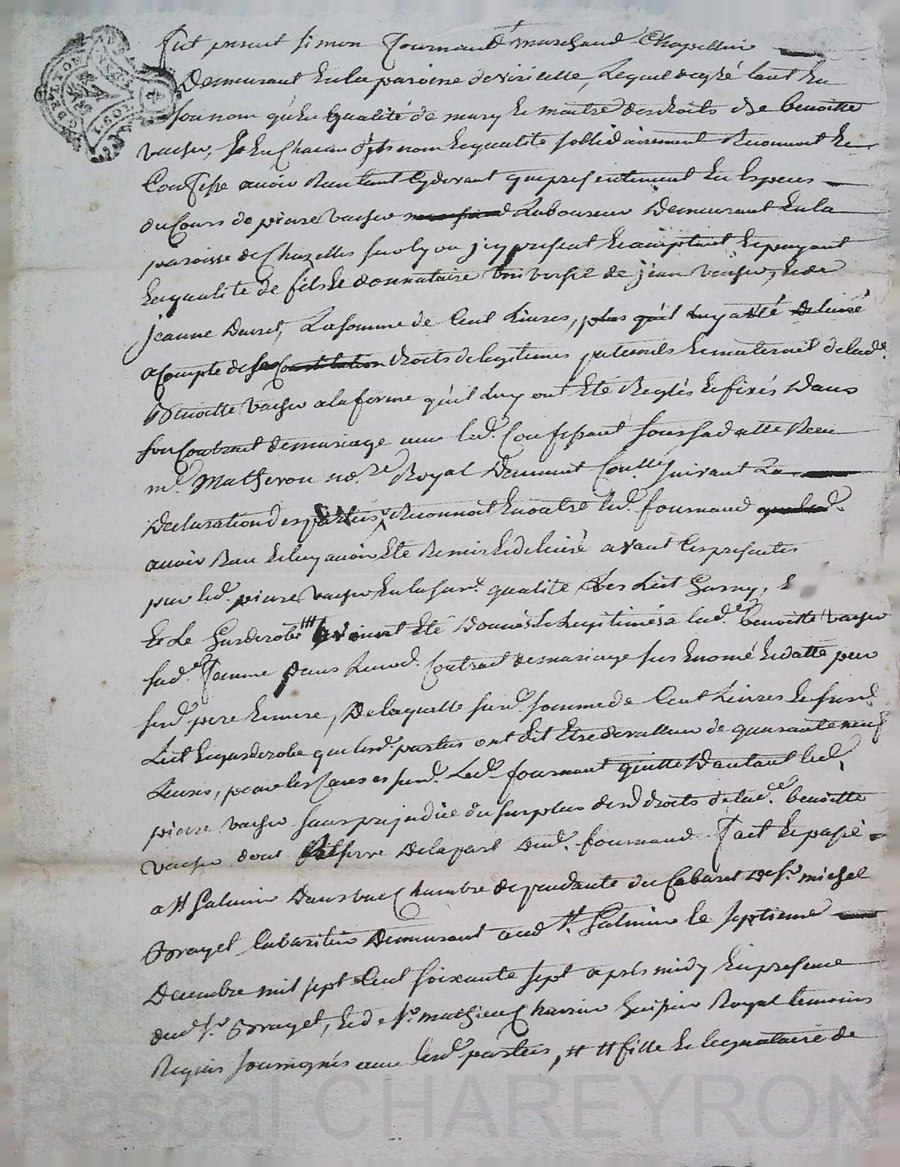 Fut present Simon fournand marchand Chapellier
Demeurant en la paroisse de viricelle, Lequel de gré tant en
son nom qu'en qualité de mary Et maitre des droits de benoitte
vacher, Et en Chacun d'ycs nom Et qualité sollidairement Reconnoit Et
Confesse avoir Reu tant Cydevant que presentement En Especes
du Cours de pierre vacher Laboureur Demeurant En la
paroisse de Chazelles sur lyon y present Et acceptant Et payant
En qualité de fils Et donnataire universel de jean vacher, Et de
jeanne Duret, La somme de Cent Livres,
a Compte des droits de legitimes paternels Et maternels de lade
Benoitte vacher a la forme qu'il luy ont Eté Reglés Et fixés Dans
son Contract de mariage avec led. Confessant sous sa datte Receu
me. Matheron nore Royal Suivant La
Declaration des parties, Reconnoit En outre led. fournand
avoir Reu Et luy avoir Eté Remis Et delivré avant Ces presentes
par led. pierre vacher En la susd. qualité Les Lict Garny, E
Et Le Garderobe Eté Donnés a lad. benoitte vacher
sad. femme Dans Leurd. Contract de mariage sus Enomé Et datté par
sesd. pere Et mere, De laquelle susd. somme de Cent Livres Et susd.
Lict Et garderobe que lesd. parties ont dit Etre de valleur de quarante neuf
Livres, Led. fournand quitte D'autant led.
pierre vacher sans prejudice du surplus desd droits de lad. benoitte
vacher dont De la part dud. fournand. fait Et passé
a St Galmier Dans une Chambre dependante du Cabaret De Sr. michel
Brayet Cabaretier Demeurant aud St. Galmier le septieme
Decembre mil sept Cent soixante sept apres midy En presence
dud. Sr. Brayet, Et de Sr. mathieu Huissier Royal temoins
Requis soussignés avec lesd. parties,
Pascal CHAREYRON